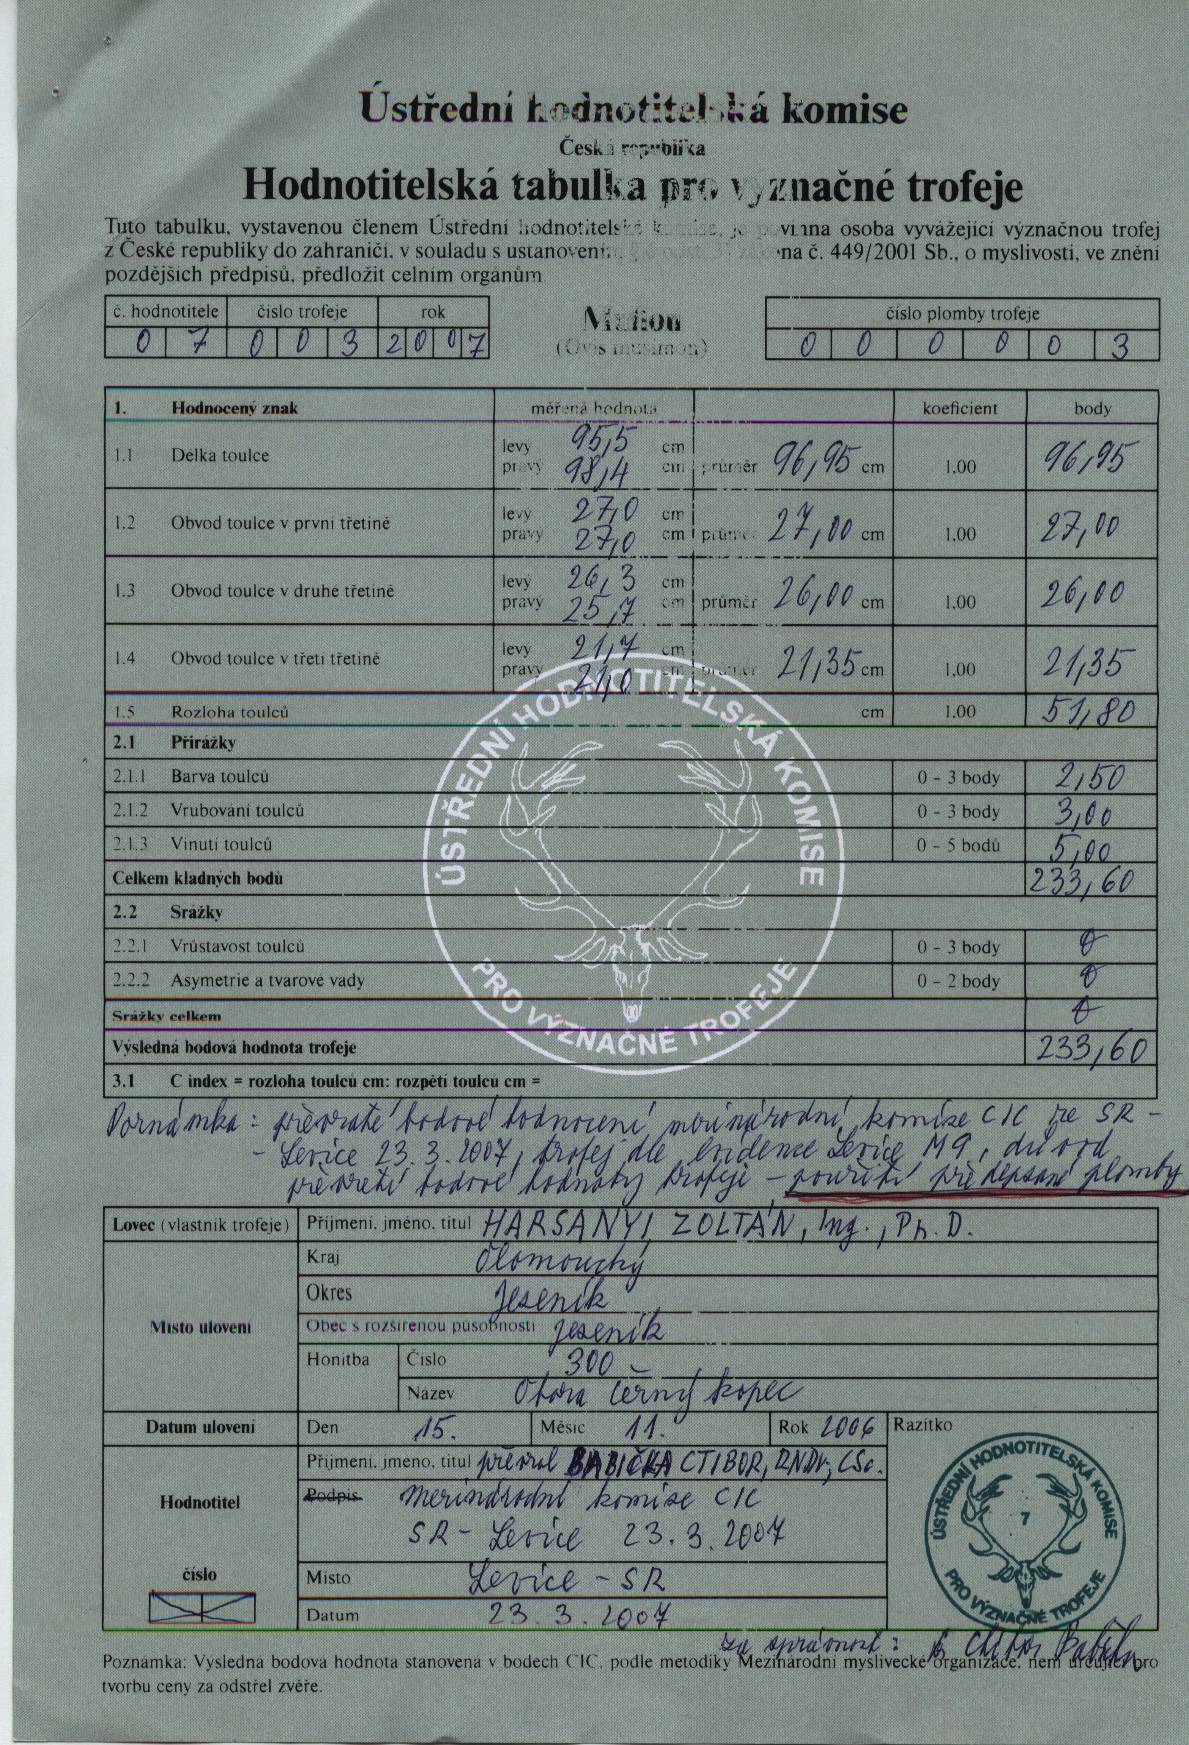 Ústřední hodnotitelská komise
Česká republika
Hodnotitelská tabulka pro význačné trofeje
Tuto tabulku, vystavenou členem Ústřední hodnotitelské komise, je povinna osoba vyvážející význačnou trofej
z České republiky do zahraničí, v souladu s ustanovením zákona č. 449/2001 Sb., o myslivosti, ve znění
pozdějších předpisů, předložit celním orgánům.
č. hodnotitele číslo trofeje rok Muflon číslo plomby trofeje
0 7 0 0 3 2 0 0 7 (Ovis musimon) 0 0 0 0 0 3
1. Hodnocený znak měřená hodnota koeficient body
1.1 Délka toulce levý 95,5 cm pravý 98,4 cm průměr 96,95 cm 1.00 96,95
1.2 Obvod toulce v první třetině levý 27,0 cm pravý 27,0 cm průměr 27,00 cm 1.00 27,00
1.3 Obvod toulce v druhé třetině levý 26,3 cm pravý 25,7 cm průměr 26,00 cm 1.00 26,00
1.4 Obvod toulce v třetí třetině levý 21,7 cm pravý 21,0 cm průměr 21,35 cm 1.00 21,35
1.5 Rozloha toulců cm 1.00 51,80
2.1 Přirážky
2.1.1 Barva toulců 0 - 3 body 2,50
2.1.2 Vrubování toulců 0 - 3 body 3,00
2.1.3 Vinutí toulců 0 - 5 bodů 5,00
Celkem kladných bodů 233,60
2.2 Srážky
2.2.1 Vrůstavost toulců 0 - 3 body 0
2.2.2 Asymetrie a tvarové vady 0 - 2 body 0
Srážky celkem 0
Výsledná bodová hodnota trofeje 233,60
3.1 C index = rozloha toulců cm: rozpětí toulců cm =
ÚSTŘEDNÍ HODNOTITELSKÁ KOMISE
PRO VÝZNAČNÉ TROFEJE
Poznámka: převzaté bodové hodnocení mezinárodní komise CIC ze SR -
- Levice 23.3.2007, trofej dle evidence Levice M9, důvod
převzetí bodové hodnoty trofeje - použití předepsané plomby
Lovec (vlastník trofeje) Příjmení, jméno, titul HARSANYI ZOLTÁN, Ing., Ph.D.
Místo ulovení
Kraj Olomoucký
Okres Jeseník
Obec s rozšířenou působností Jeseník
Honitba Číslo 300
Název Obora Černý kopec
Datum ulovení Den 15. Měsíc 11. Rok 2006 Razítko
Hodnotitel
Příjmení, jméno, titul převzal BABIČKA CTIBOR, RNDr., CSc.
Podpis Mezinárodní komise CIC
SR - Levice 23.3.2007
číslo
Místo Levice - SR
Datum 23.3.2007
ÚSTŘEDNÍ HODNOTITELSKÁ KOMISE
7
PRO VÝZNAČNÉ TROFEJE
za správnost:
Poznámka: Výsledná bodová hodnota stanovená v bodech CIC, podle metodiky Mezinárodní myslivecké organizace, není určující pro
tvorbu ceny za odstřel zvěře.